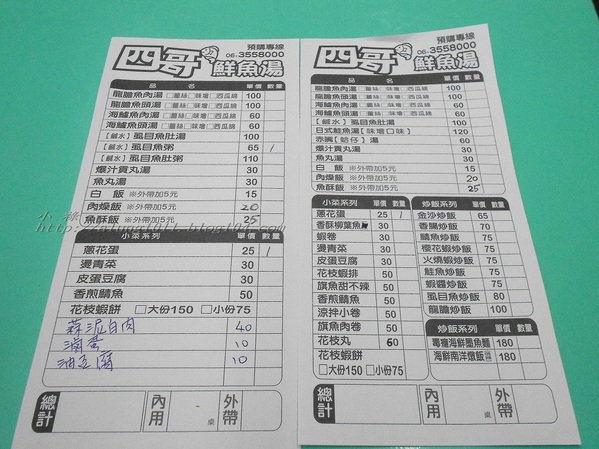 預購專線
06-3558000
四哥 鮮魚湯
品名 單價 數量
龍膽魚肉湯 □薑絲□味噌□西瓜綿 100
龍膽魚頭湯 □薑絲□味噌□西瓜綿 100
海鱸魚肉湯 □薑絲□味噌□西瓜綿 60
海鱸魚頭湯 □薑絲□味噌□西瓜綿 60
[鹹水] 虱目魚肚湯 100
[鹹水] 虱目魚粥 65 /
[鹹水] 虱目魚肚粥 110
爆汁貢丸湯 30
魚丸湯 30
白飯 ※外帶加5元 15
肉燥飯 ※外帶加5元 20
魚酥飯 ※外帶加5元 25
小菜系列 單價 數量
蔥花蛋 25 /
燙青菜 30
皮蛋豆腐 30
香煎鯖魚 50
花枝蝦餅 □大份150 □小份75
蒜泥白肉 40
滷蛋 10
油豆腐 10
總計 內用 桌 外帶
預購專線
06-3558000
四哥 鮮魚湯
品名 單價 數量
龍膽魚肉湯 □薑絲□味噌□西瓜綿 100
龍膽魚頭湯 □薑絲□味噌□西瓜綿 100
海鱸魚肉湯 □薑絲□味噌□西瓜綿 60
海鱸魚頭湯 □薑絲□味噌□西瓜綿 60
[鹹水] 虱目魚肚湯 100
日式鮭魚湯 [味噌口味] 120
赤嘴 [蛤仔] 湯 60
爆汁貢丸湯 30
魚丸湯 30
白飯 ※外帶加5元 15
肉燥飯 ※外帶加5元 20
魚酥飯 ※外帶加5元 25
小菜系列 單價 數量
蔥花蛋 25 /
香酥柳葉魚 30
蝦卷 30
燙青菜 30
皮蛋豆腐 30
花枝蝦排 50
旗魚甜不辣 50
香煎鯖魚 50
涼拌小卷 50
旗魚肉卷 50
花枝丸 60
花枝蝦餅
□大份150 □小份75
炒飯系列 單價 數量
金沙炒飯 65
香腸炒飯 70
鯖魚炒飯 75
櫻花蝦炒飯 75
火燒蝦炒飯 75
鮭魚炒飯 75
蝦醬炒飯 75
虱目魚炒飯 80
龍膽炒飯 100
炒飯系列 單價 數量
海鮮墨魚麵 180
海鮮南洋燉飯 180
總計 內用 桌 外帶